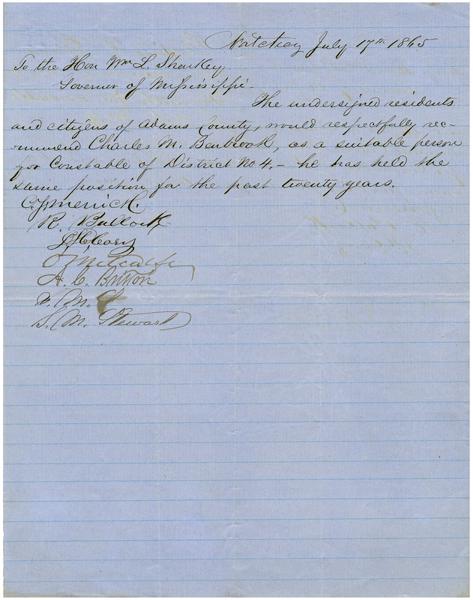 Natchez July 17th 1865
To the Hon Wm L Sharkey
Governor of Mississippi.
The undersigned residents
and citizens of Adams County, would respectfully rec-
ommend Charles M. Barlrook, as a suitable person
for Constable of District No 4. - he has held the
same position for the past twenty years.
R. Bullock
A. C. Britton
S. M. Stewart